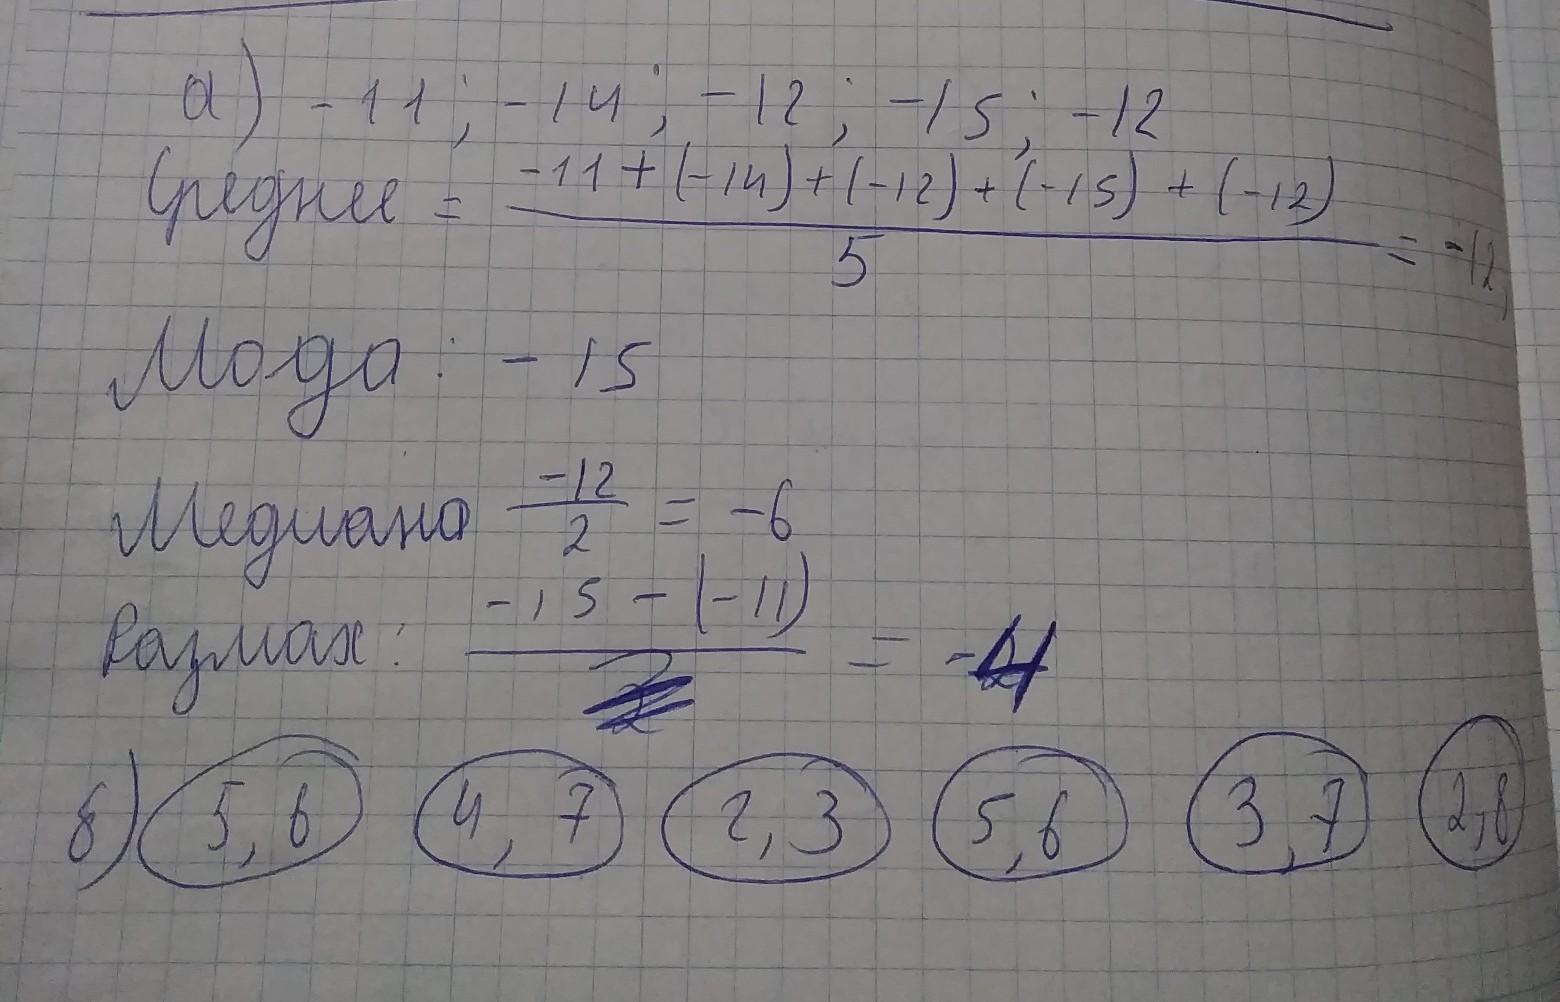 а) -11; -14; -12; -15; -12
Среднее = -11 + (-14) + (-12) + (-15) + (-12) / 5 = -12,
Мода: -15
Медиана -12 / 2 = -6
Размах: -15 - (-11) = -4
б) 5,6 4,7 2,3 5,6 3,7 2,8